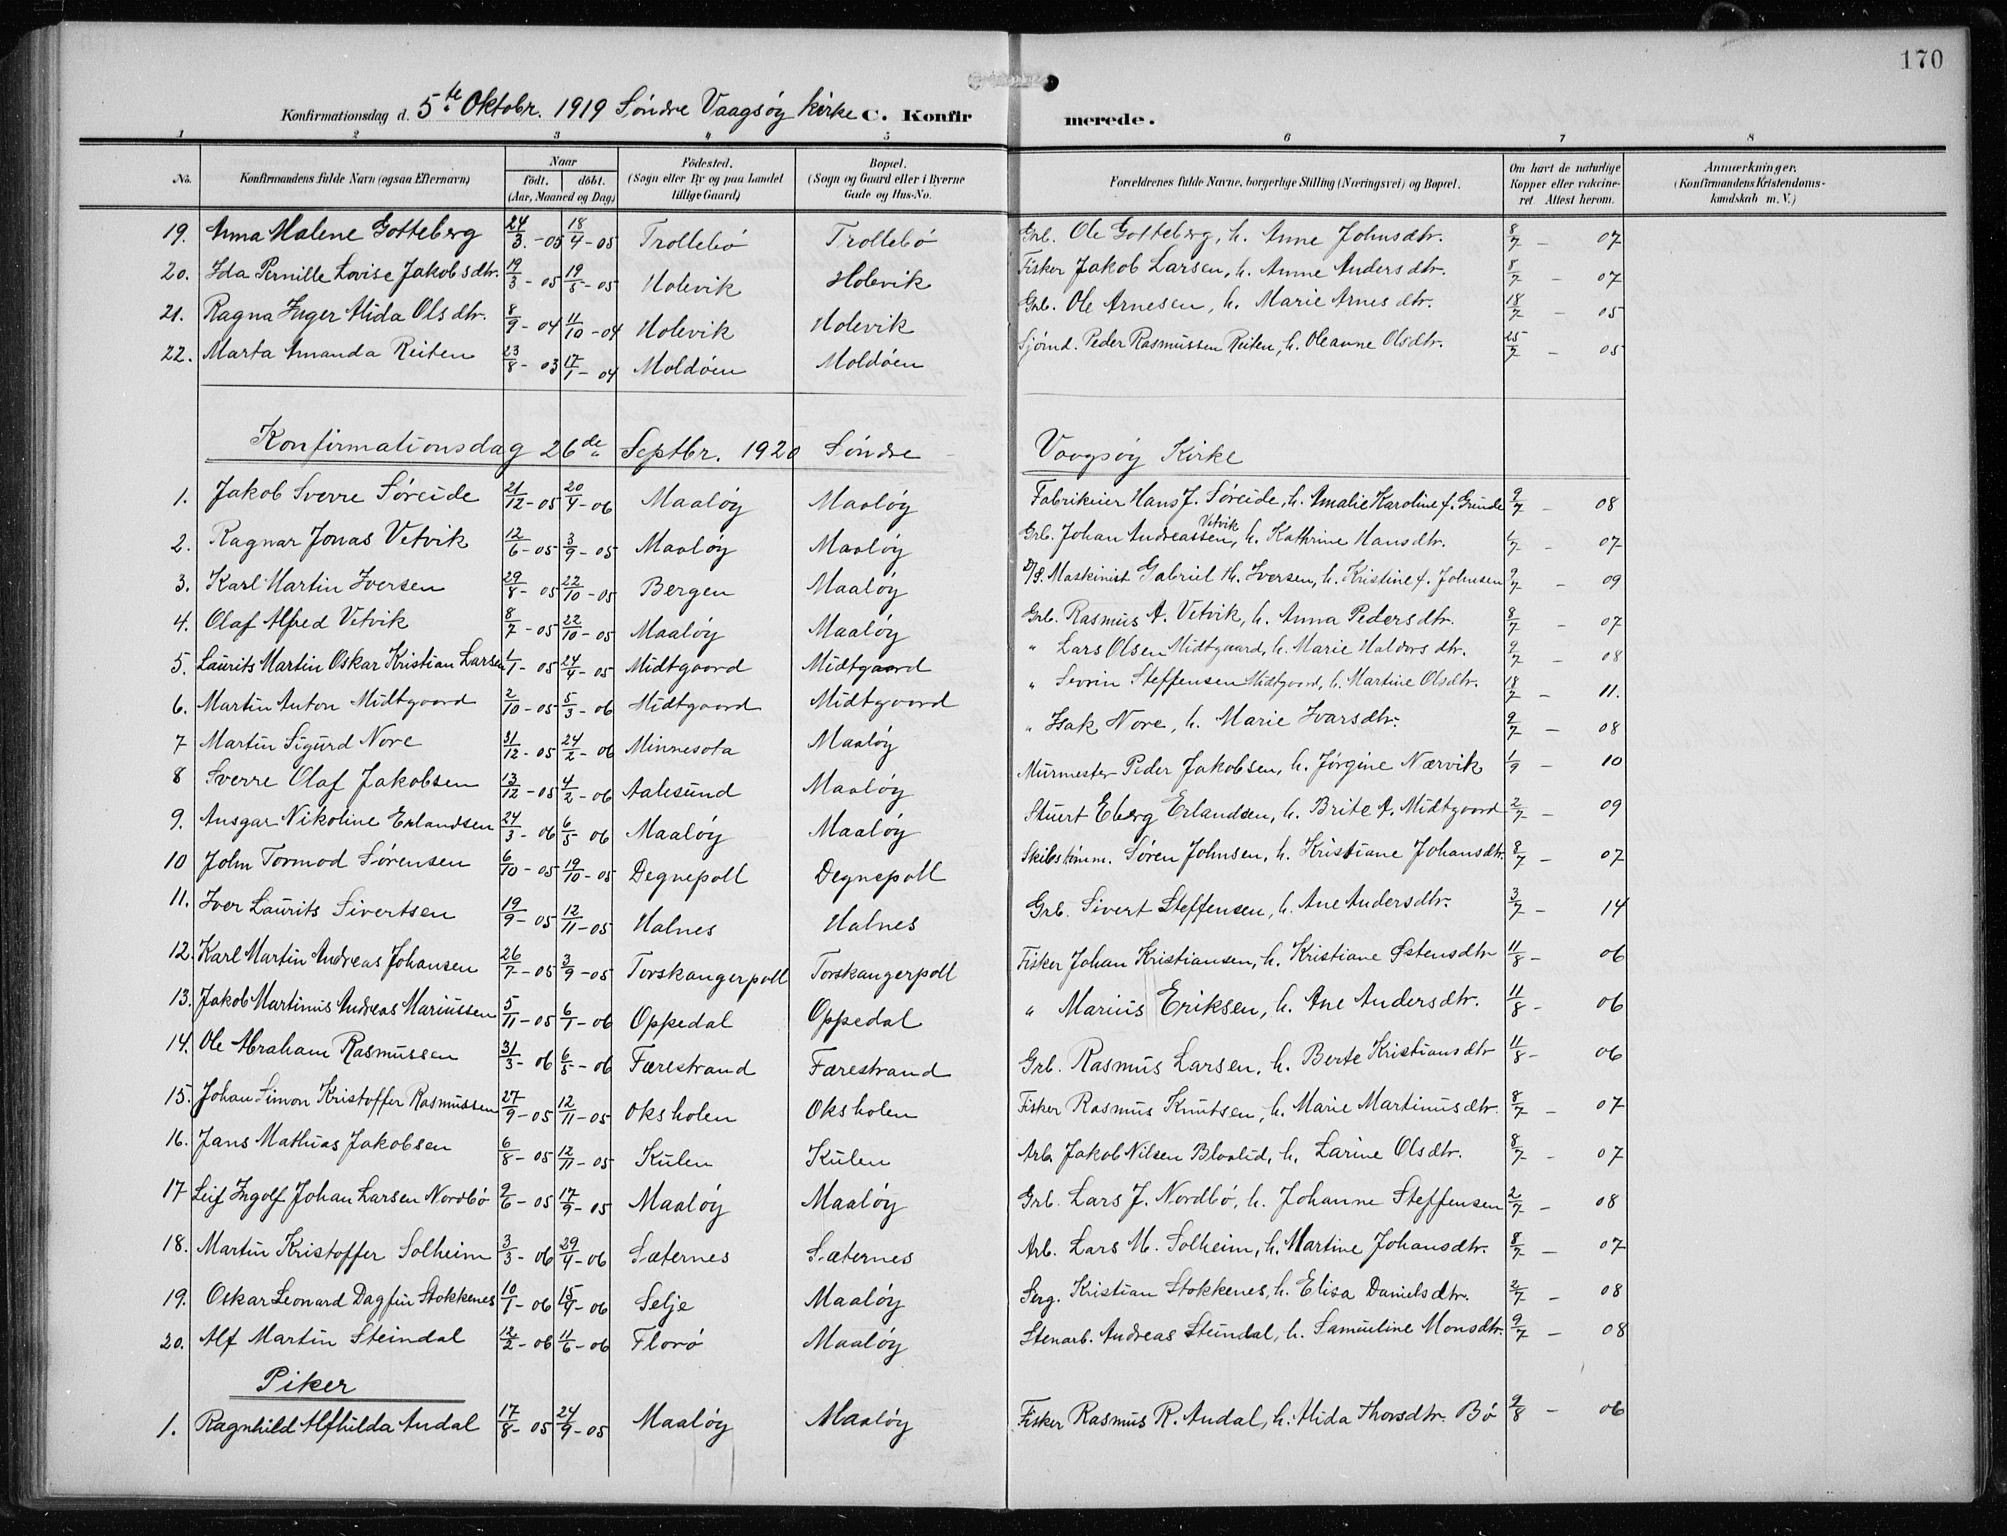 170
Konfirmationsdag d. 5te Oktobr. 1919 Søndre Vaagsøy kirke C. Konfirmerede.
1 2 3 4 5 6 7 8
No. Konfirmandens fulde Navn (ogsaa Efternavn) Naar født. døbt. (Aar, Maaned og Dag) Födested. (Sogn eller By og paa Landet tillige Gaard) Bopæl. (Sogn og Gaard eller i Byerne Gade og Hus-No. Forældrenes fulde Navne, borgerlige Stilling (Næringsvei) og Bopæl. Om havt de naturlige Kopper eller vakcineret. Attest herom. Anmærkninger. (Konfirmandens Kristendomskundskab m. V.)
19. Anna Malene Gotteberg 24/3-05 18/4-05 Trollebö Trollebö Grb. Ole Gotteberg, h. Anne Johnsdtr. 8/7 - 07
20. Ida Pernille Lovise Jakobsdtr. 19/3-05 19/5-05 Holevik Holevik Fisker Jakob Larsen, h. Anne Andersdtr. 8/7 - 07
21. Ragna Inger Alida Olsdtr. 8/9-04 11/10-04 Holevik Holevik Grb. Ole Arnesen, h. Marie Arnesdtr. 18/7 - 05
22. Marta Amanda Reiten 23/8-03 17/1-04 Moldöen Moldöen Sjömd. Peder Rasmussen Reiten, h. Oleanne Olsdtr. 25/7 - 05
Konfirmationsdag 26de Septbr. 1920 Söndre Vaagsöy Kirke
1. Jakob Sverre Söreide 21/12-05 20/4-06 Maalöy Maalöy Fabrikeier Hans J. Söreide, h. Amalie Karoline f. Grinde 9/7 - 08
2. Ragnar Jonas Vetvik 12/6-05 3/9-05 Maalöy Maalöy Grb. Johan Andreassen Vetvik, h. Kathrine Hansdtr. 1/7 - 07
3. Karl Martin Iversen 29/8-05 22/10-05 Bergen Maalöy D/S. Maskinist Gabriel M. Iversen, h. Kristine f. Johnsen 9/7 - 09
4. Olaf Alfred Vetvik 8/7-05 22/10-05 Maalöy Maalöy Grb. Rasmus A. Vetvik, h. Anna Pedersdtr. 8/7 - 07
5. Laurits Martin Oskar Kristian Larsen 1/1-05 24/4-05 Midtgaard Midtgaard " Lars Olsen Midtgaard, h. Marie Haldorsdtr. 9/7 - 08
6. Martin Anton Midtgaard 2/10-05 5/3-06 Midtgaard Midtgaard " Sevrin Steffensen Midtgaard, h. Martine Olsdtr. 18/7 - 11.
7 Martin Sigurd Nore 31/12-05 24/2-06 Minnesota Maalöy " Isak Nore, h. Marie Ivarsdtr. 9/7 - 08
8 Sverre Olaf Jakobsen 13/12-05 4/2-06 Aalesund Maalöy Murmester Peder Jakobsen, h. Jörgine Nærvik 1/9 - 10
9. Ansgar Nikoline Erlandsen 24/3-06 6/5-06 Maalöy Maalöy Stuert Eberg Erlandsen, h. Brite A. Midtgaard 2/7 - 09
10 John Tormod Sörensen 6/10-05 19/10-05 Degnepoll Degnepoll Skibstömm. Sören Johnsen, h. Kristiane Johansdtr. 8/7 - 07
11. Iver Laurits Sivertsen 19/9-05 12/11-05 Halnes Halnes Grb. Sivert Steffensen, h. Ane Andersdtr. 3/7 - 14
12. Karl Martin Andreas Johansen 26/7-05 3/9-05 Torskangerpoll Torskangerpoll Fisker Johan Kristiansen, h. Kristiane Østensdtr 11/8 - 06
13. Jakob Martinus Andreas Mariussen 5/11-05 6/1-06 Oppedal Oppedal " Marius Eriksen, h. Ane Andersdtr. 11/8 - 06
14. Ole Abraham Rasmussen 31/3-06 6/5-06 Færestrand Færestrand Grb. Rasmus Larsen, h. Berte Kristiansdtr 11/8 - 06
15. Johan Simon Kristoffer Rasmussen 27/9-05 12/11-05 Oksholen Oksholen Fisker Rasmus Knutsen, h. Marie Martinusdtr. 8/7 - 07
16. Jans Mathias Jakobsen 6/8-05 12/11-05 Kulen Kulen Arb. Jakob Nilsen Blaalid, h. Larine Olsdtr. 8/7 - 07
17 Leif Ingolf Johan Larsen Nordbö 9/6-05 17/9-05 Maalöy Maalöy Grb. Lars J. Nordbö, h. Johanne Steffensen 2/7 - 08
18. Martin Kristoffer Solheim 3/3-06 29/4-06 Sæternes Sæternes Arb. Lars M. Solheim, h. Martine Johansdtr. 8/7 - 07
19. Oskar Leonard Dagfin Stokkenes 10/1-06 15/4-06 Selje Maalöy Serg. Kristian Stokkenes, h. Elisa Danielsdtr. 2/7 - 08
20. Alf Martin Steindal 12/2-06 11/6-06 Florö Maalöy Stenarb. Andreas Steindal, h. Samueline Monsdtr. 9/7 - 08
Piker
1. Ragnhild Alfhilda Andal 17/8-05 24/9-05 Maalöy Maalöy Fisker Rasmus R. Andal, h. Alida Thorsdtr. Bö 9/8 - 06